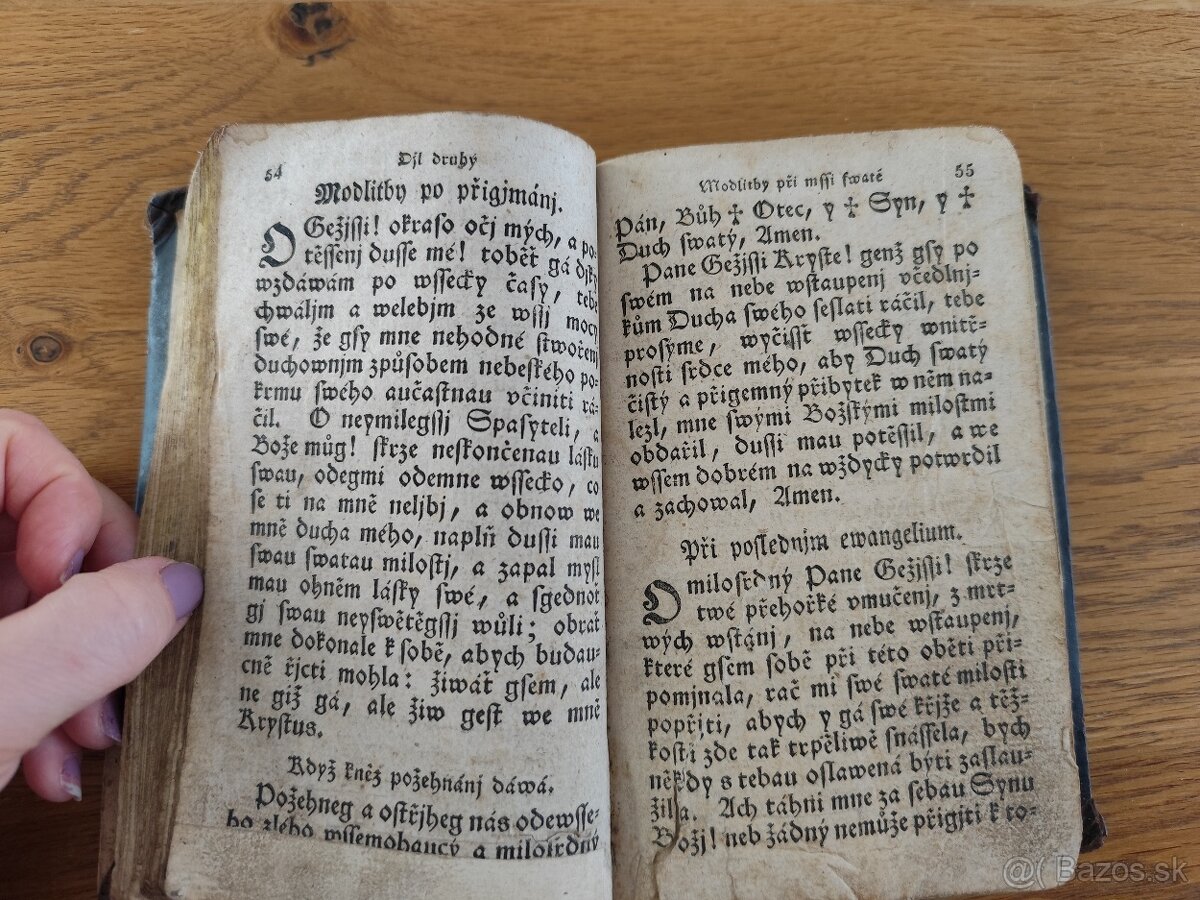 54
Djl druhý
Modlitby po přigjmánj.
O Gežjssi! okraso očj mých, a po-
těssenj dusse mé! tobět gá djky
wzdáwám po wssecky časy, tebe
chwáljm a welebjm ze wssj mocy
swé, že gsy mne nehodné stwořenj
duchownjm způsobem nebeského po-
krmu swého aučastnau včiniti rá-
čil. O neymilegssj Spasyteli, a
Bože můg! skrze neskončenau lásku
swau, odegmi odemne wssecko, co
se ti na mně neljbj, a obnow we
mně ducha mého, naplň dussi mau
swau swatau milostj, a zapal mysl
mau ohněm lásky swé, a sgednoť
gj swau neyswětěgssj wůli; obrať
mne dokonale k sobě, abych budau-
cně řjcti mohla: žiwáť gsem, ale
ne giž gá, ale žiw gest we mně
Krystus.
Když kněz požehnánj dáwá.
Požehneg a ostřjheg nás odewsse-
ho zlého wssemohaucý a milosrdný
55
Modlitby při mssi swaté
Pán, Bůh ✝ Otec, y ✝ Syn, y ✝
Duch swatý, Amen.
Pane Gežjssi Kryste! genž gsy po
swém na nebe wstaupenj včedlnj-
kům Ducha swého seslati ráčil, tebe
prosyme, wyčisst wssecky wnitř-
nosti srdce mého, aby Duch swatý
čistý a přigemný přibytek w něm na-
lezl, mne swými Božskými milostmi
obdařil, dussi mau potěssil, a we
wssem dobrém na wždycky potwrdil
a zachowal, Amen.
Při poslednjm ewangelium.
O milosrdný Pane Gežjssi! skrze
twé přehořké vmučenj, z mrt-
wých wstánj, na nebe wstaupenj,
které gsem sobě při této oběti při-
pomjnala, rač mi swé swaté milosti
popřjti, abych y gá swé křjže a těž-
kosti zde tak trpěliwě snássela, bych
někdy s tebau oslawená býti zaslau-
žila. Ach táhni mne za sebau Synu
Božj! neb žádný nemůže přigjti k to-
@ Bazos.sk